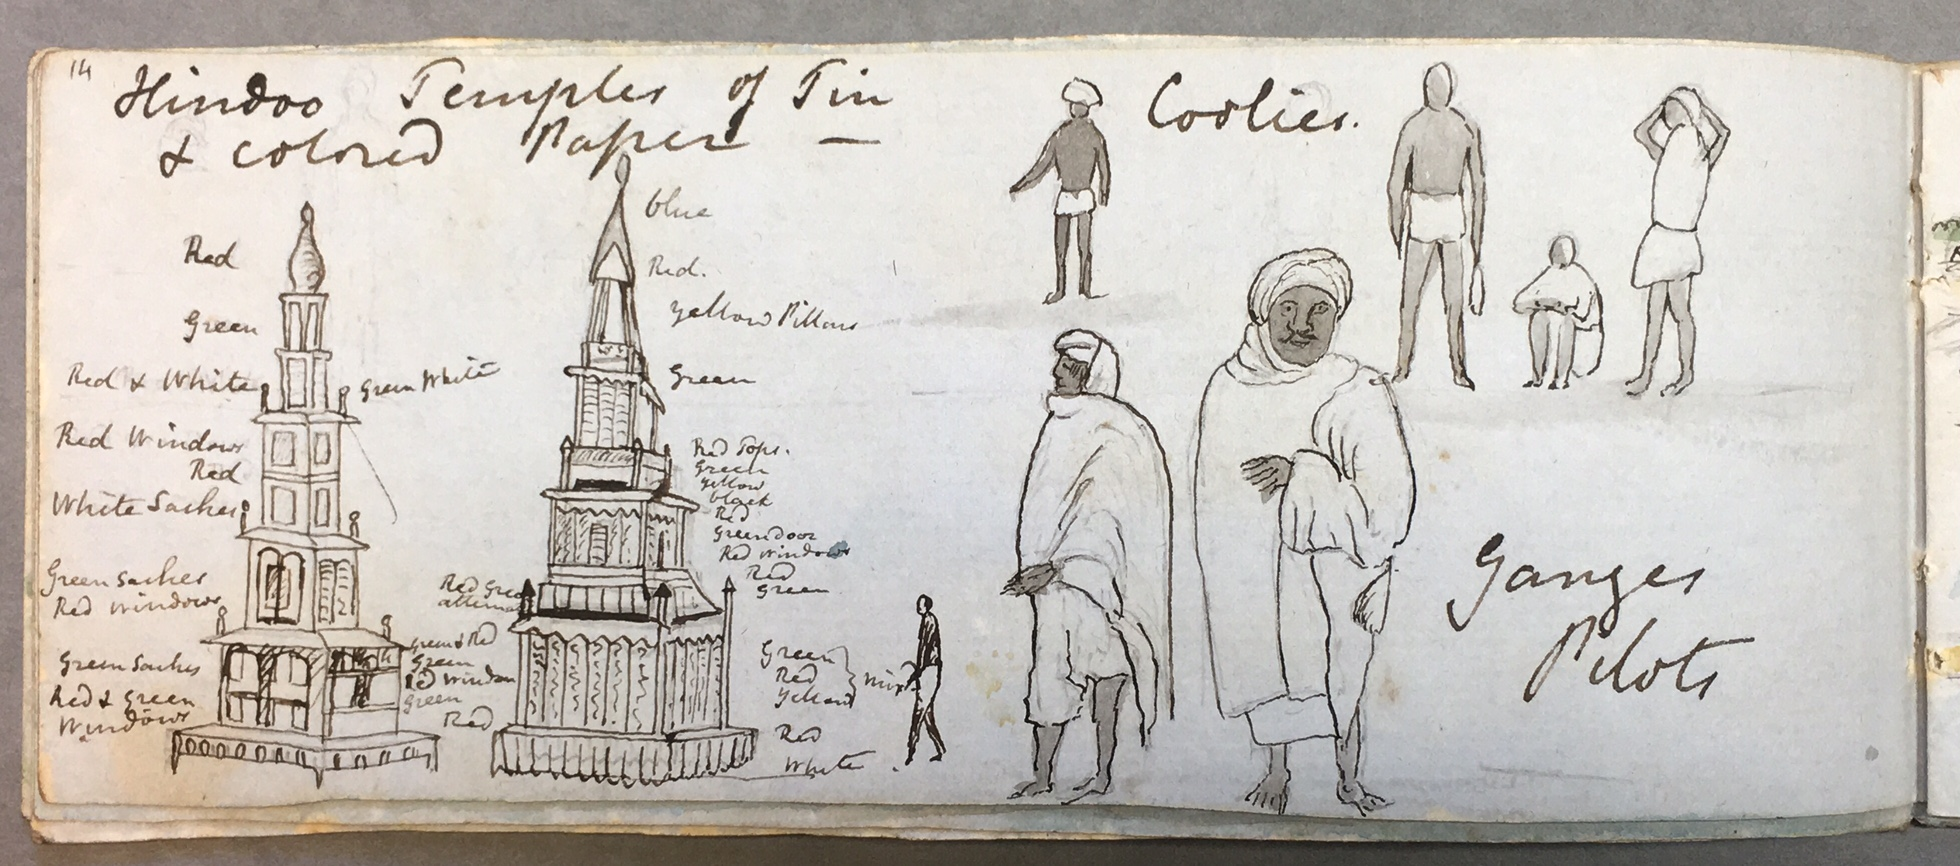 14
Hindoo Temples of Tin
& colored Paper —
Red
Green
Red & White
Green White
Red Windows
Red
White Saches
Green Saches
Red Windows
Green Saches
Red & Green
Windows
Green & Red
Green
Red Window
Green
Red
blue
Red.
Yellow Pillars
Green
Red Tops.
Green
Yellow
black
Red
Green door
Red Windows
Red
Green
Red Green
Green
Red
Yellow
Red
White
Coolies.
Ganges
Pilots